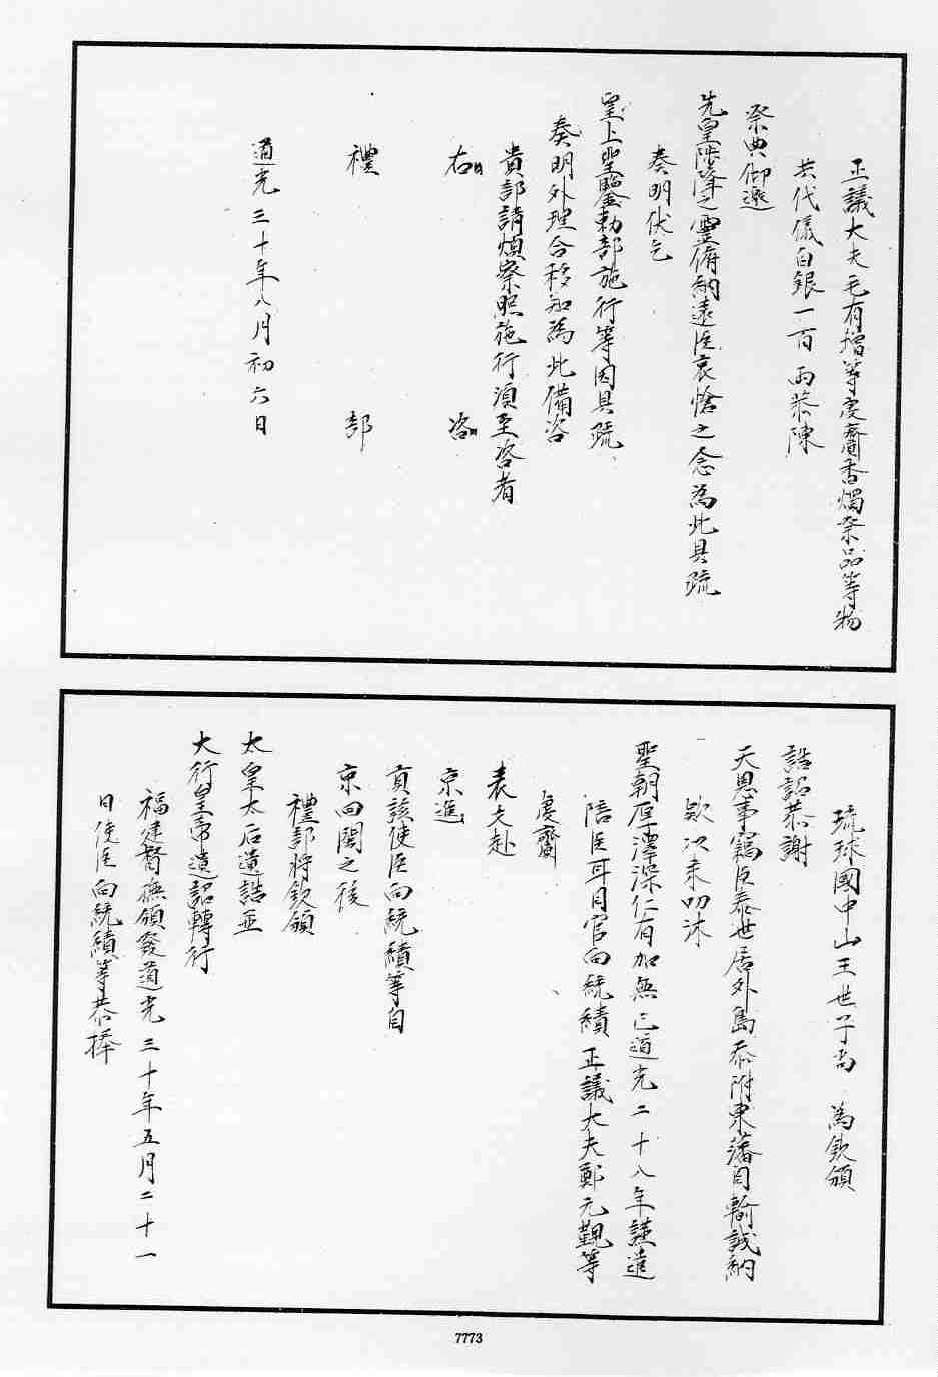 正議大夫毛有增等虔齎香燭祭品等物
共代儀白銀一百兩恭陳
祭典仰邀
先皇陟降之靈俯納遠臣哀愴之念為此具疏
奏明伏乞
皇上聖鑒勅部施行等因具疏
奏明外理合移知為此備咨
貴部請煩察照施行須至咨者
右咨
禮部
道光三十年八月初六日
琉球國中山王世子尚 為欽頒
誥詔恭謝
天恩事竊臣泰世居外島忝附東藩自輸誠納
款以來叨沐
聖朝厚澤深仁有加無已道光二十八年謹遣
陪臣耳目官向統績正議大夫鄭元覲等
虔齎
表文赴
京進
貢該使臣向統績等自
京回閩之後
禮部將欽頒
太皇太后遺誥並
大行皇帝遺詔轉行
福建督撫頒發道光三十年五月二十一
日使臣向統績等恭捧
7773